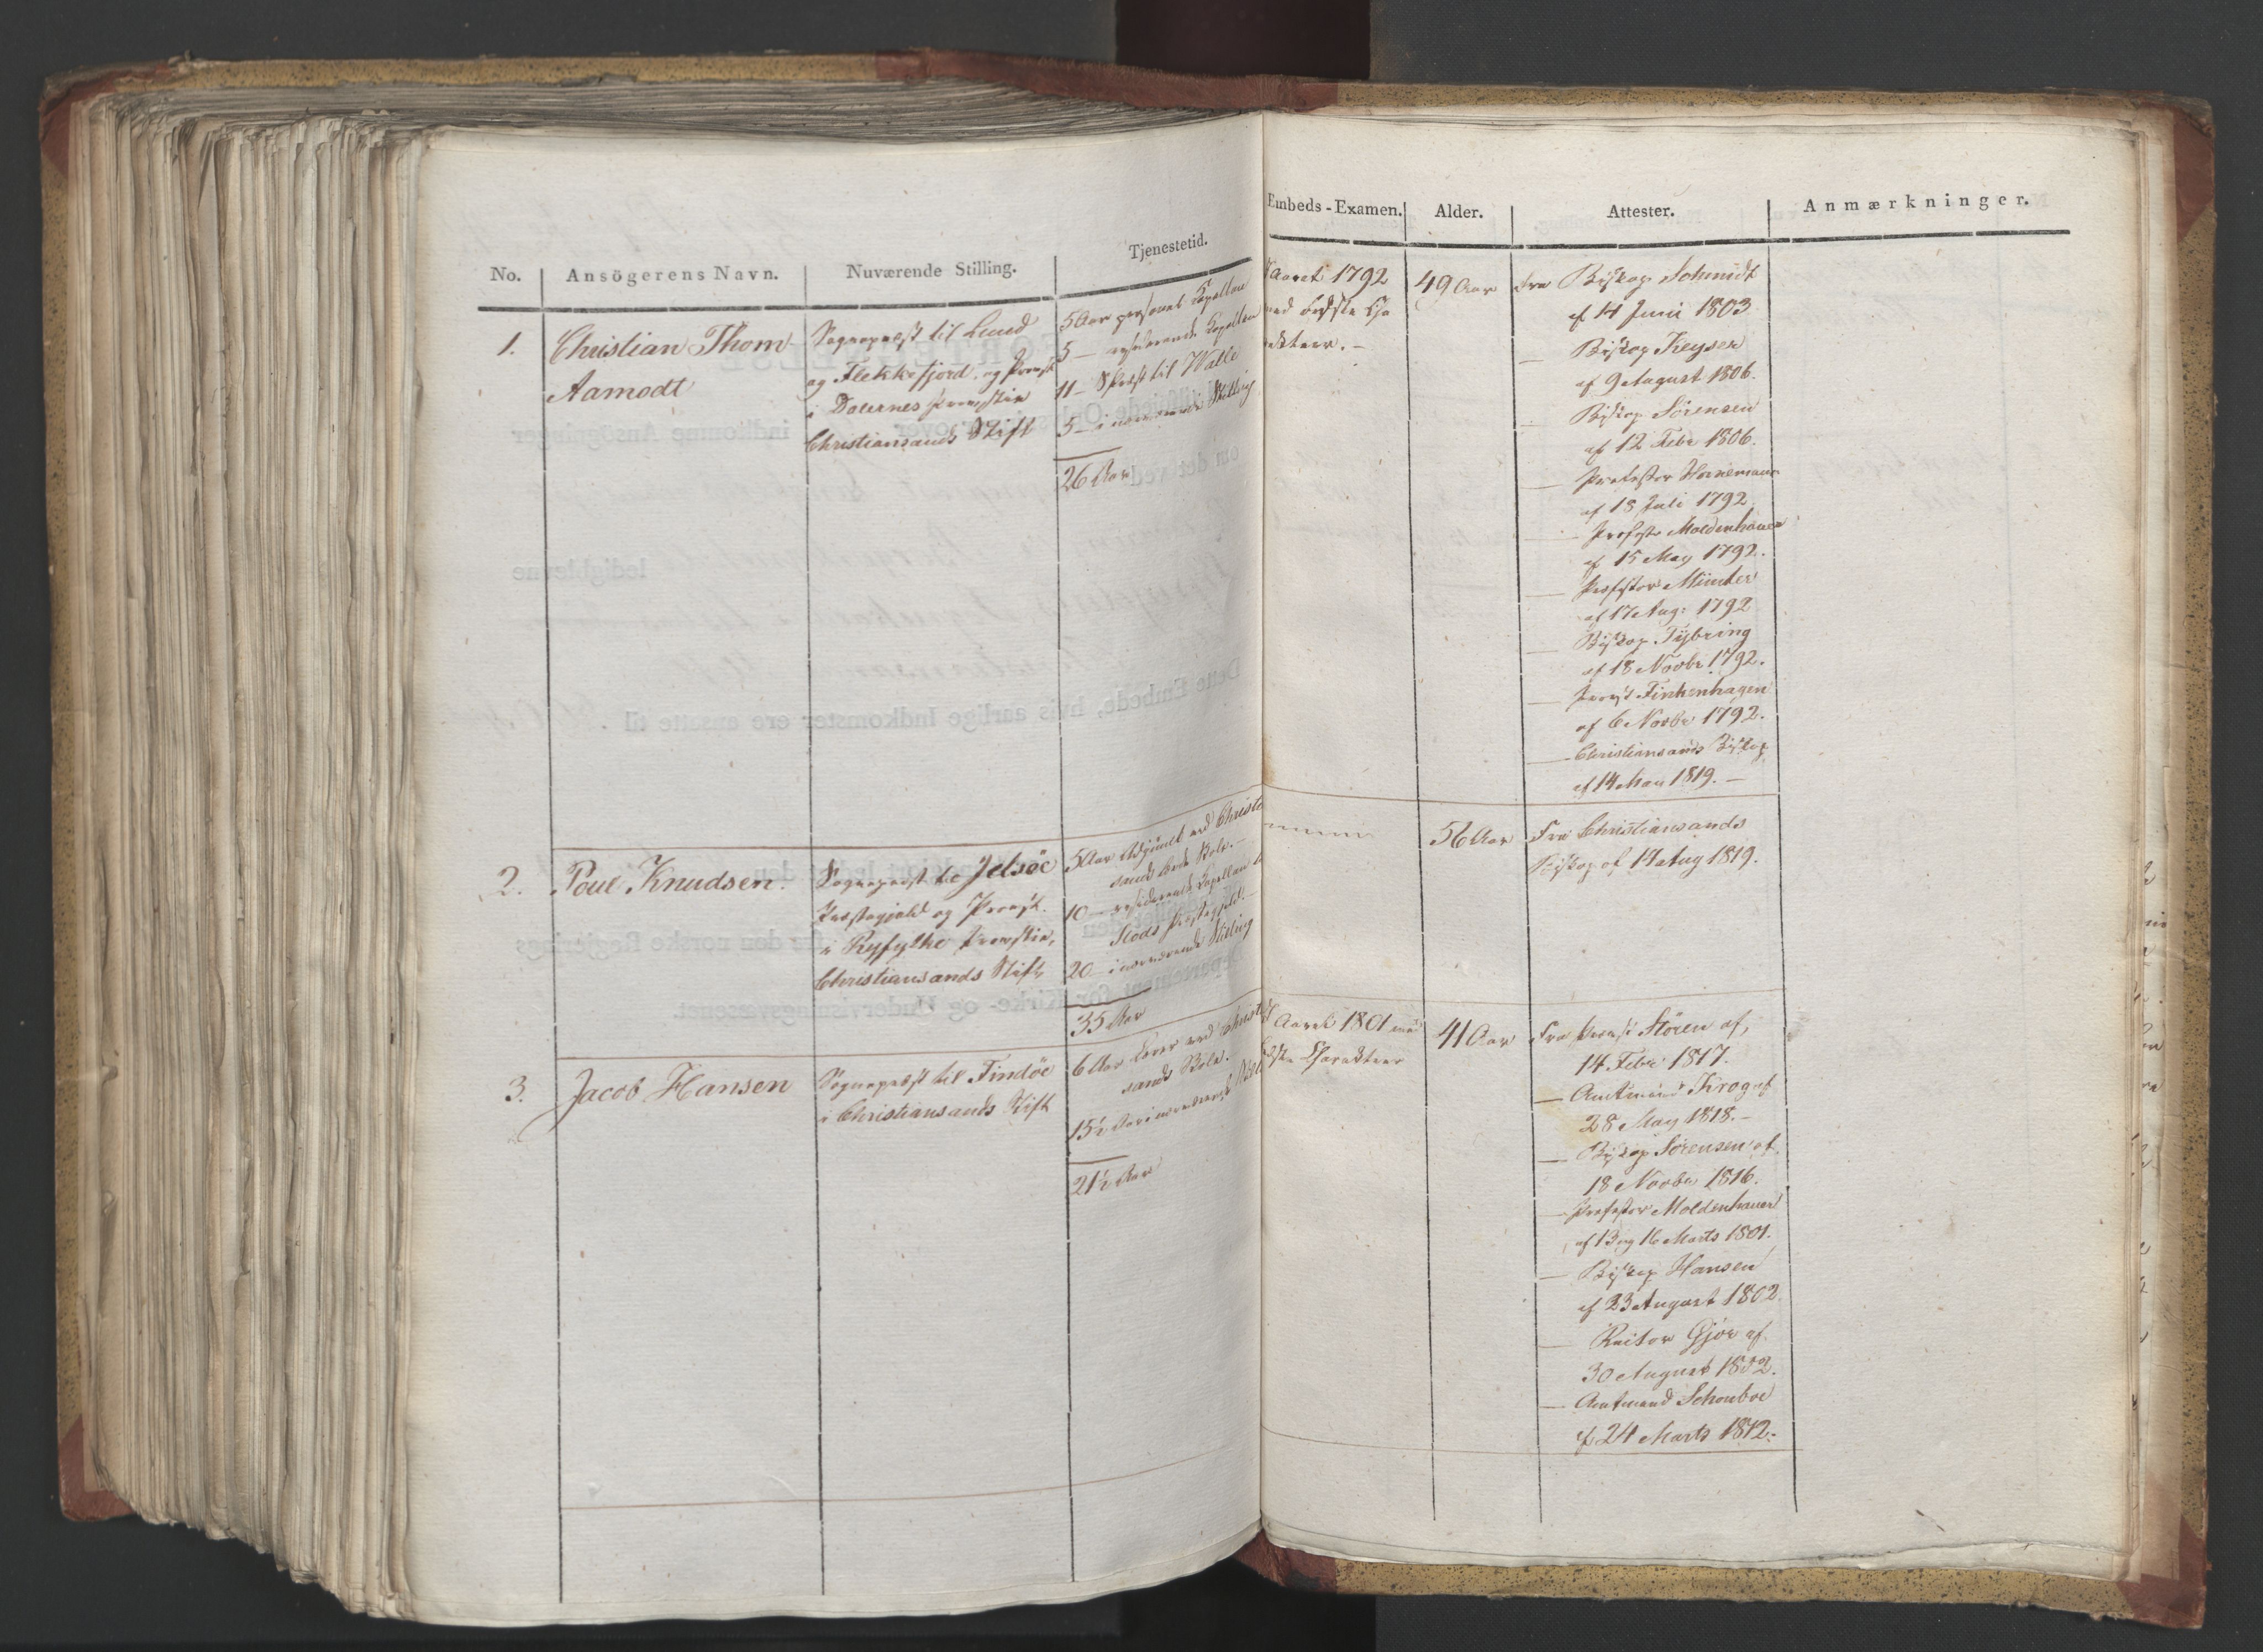 No.
Ansögerens Navn.
Nuværende Stilling.
Tjenestetid.
1.
Christian Thom
Aamodt
Sognepræst til Lund
og Flekkefjord, og Provst
i Dalernes Provstie
Christiansands Stift
5 Aar personel Kapellan
5 — residerende Kapellan
11 — Spræst til Walle
5 — i nuværende Stilling
26 Aar
2.
Poul Knudsen.
Sognepræst til Jelsöe
Præstegjeld og Provst
i Ryfylke Provstie,
Christiansands Stift
5 Aar Adjunct ved Christi
sands lærde Skole. —
10 — residerende Kapellan
Præstegjeld. —
20 — i nuværende Stilling
35 Aar
3.
Jacob Hansen
Sognepræst til Findöe
i Christiansands Stift
6 Aar Lærer ved Christi
sands Skole.
15½ Aar i nuværende
21½ Aar
Embeds-Examen.
Alder.
Attester.
Anmærkninger.
Aaret 1792
med bedste Cha
rakteer. —
49 Aar
Fra Biskop Schmidt
af 14 Juni 1803
— Biskop Keyser
af 9 August 1806.
Biskop Sörensen
af 12 Febr 1806.
— Professor Hornemann
af 18 Juli 1792
— Profess. Moldenhauer
af 15 May 1792.
— Professor Münter
af 17 Aug: 1792
— Biskop Tybring
af 18 Novbr 1792.
— Provst Finkenhagen
af 6 Novbr 1792.
— Christiansands Biskop
af 14 1819. —
56 Aar
Fra Christiansands
Biskop af 14 Aug 1819.
Aaret 1801 med
bedste Charakteer
41 Aar
Fra Provst Stören af,
14 Febr 1817.
— Amtmand Krog af
28 May 1818. —
— Biskop Sörensen af
18 Novbr 1816.
— Professor Moldenhauer
af 13 og 16 Marts 1801.
— Biskop Hansen
af 23 August 1802
— Rector Gjör af
30 August 1802.
— Amtmand Schouboe
af 24 Marts 1812.